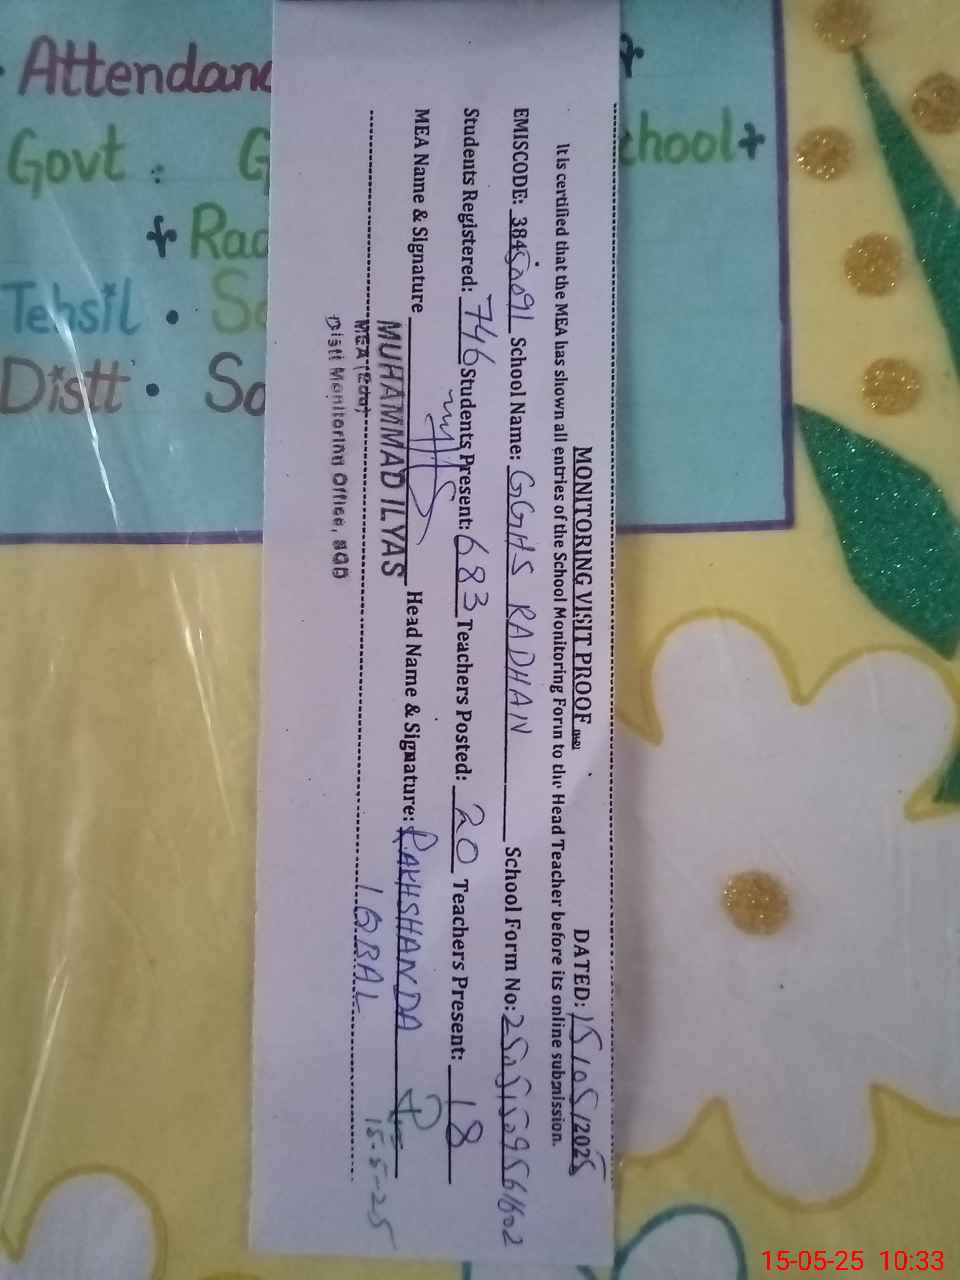 • Attendanc
Govt. G chool+
+ Rad
Tehsil • Sa
Distt • Sa
MONITORING VISIT PROOF DATED: 15/05/2025
It is certified that the MEA has shown all entries of the School Monitoring Form to the Head Teacher before its online submission.
EMISCODE: 38450091 School Name: GGHS RADHAN School Form No:
Students Registered: 746 Students Present: 683 Teachers Posted: 20 Teachers Present: 18
MEA Name & Signature MUHAMMAD ILYAS Head Name & Signature: RAKHSHANDA
MEA (Edu) IQBAL 15-5-25
Distt Monitoring Office, SGD
15-05-25 10:33